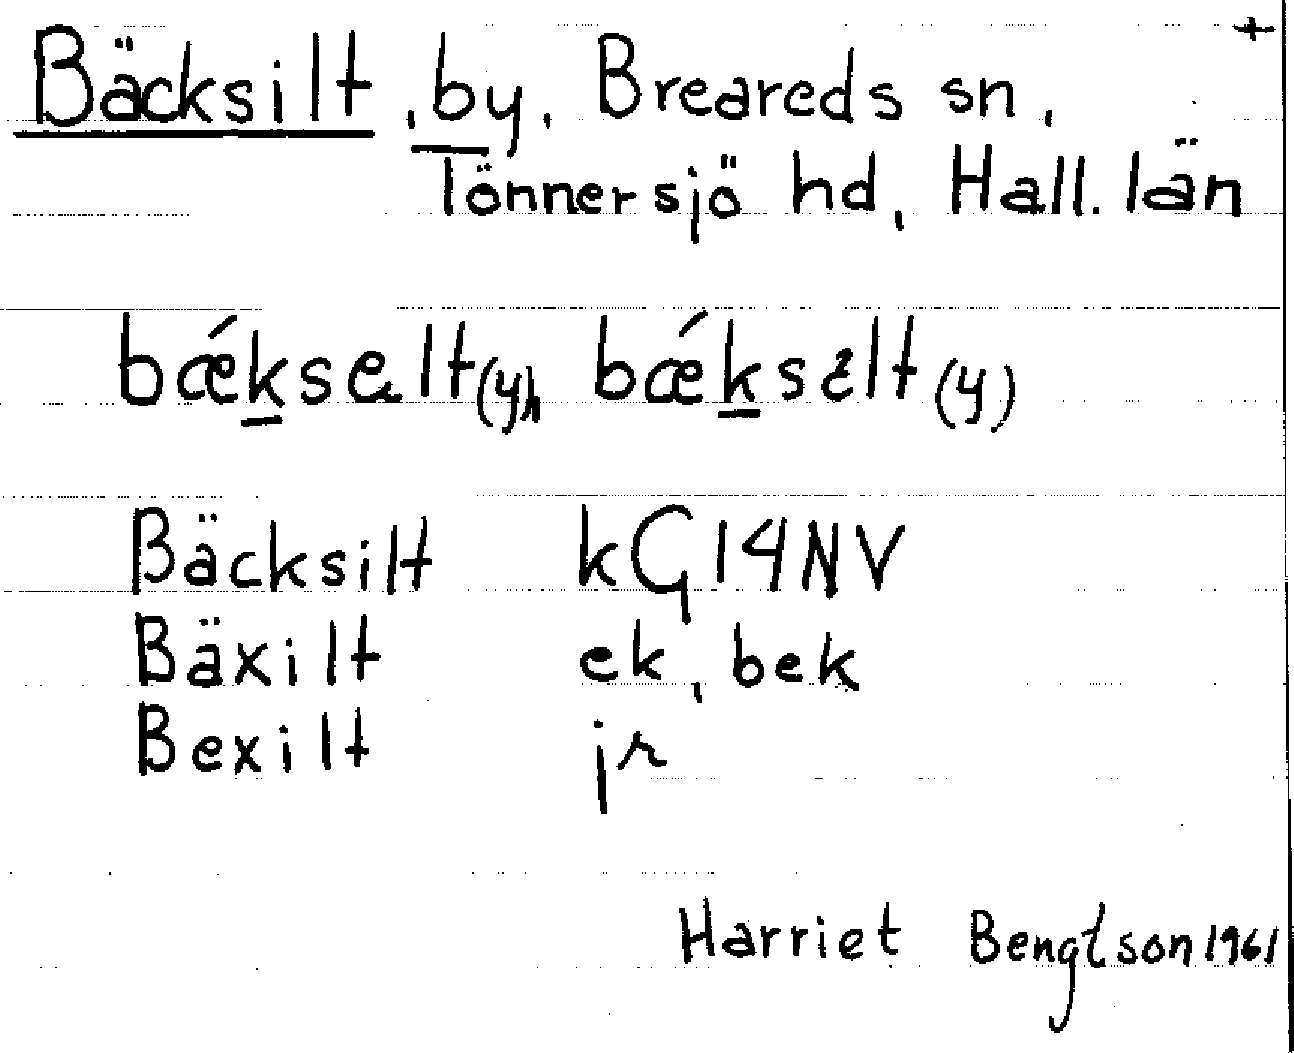 +
Bäcksilt, by, Breareds sn,
Tönnersjö hd, Hall. län
bǽks lt(y), bǽks lt(y)
Bäcksilt kG14NV
Bäxilt ek, bek
Bexilt jr
Harriet Bengtson 1961